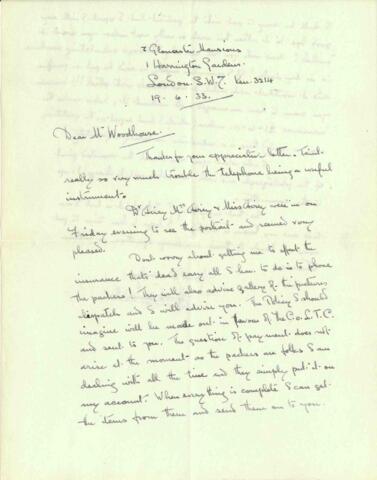 2 Gloucester Mansions
1 Harrington Gardens.
London. S.W.7. Ken. 3214
19. 6. 33.
Dear Mr Woodhouse.
Thanks for your appreciative letter. Taint
really so very much trouble the telephone being a useful
instrument.
Dr Airey Mrs Airey & Miss Airey were in on
Friday evening to see the portrait and seemed very
pleased.
Dont worry about getting me to effect the
insurance thats dead easy all I have to do is to phone
the packers! They will also advise gallery of the pictures
dispatch and I will advise you. The Policy I should
imagine will be made out in favour of the Co. L.T.C.
and sent to you. The question of payment does not
arise at the moment as the packers are folks I am
dealing with all the time and they simply put it on
my account. When everything is complete I can get
the items from them and send them on to you.